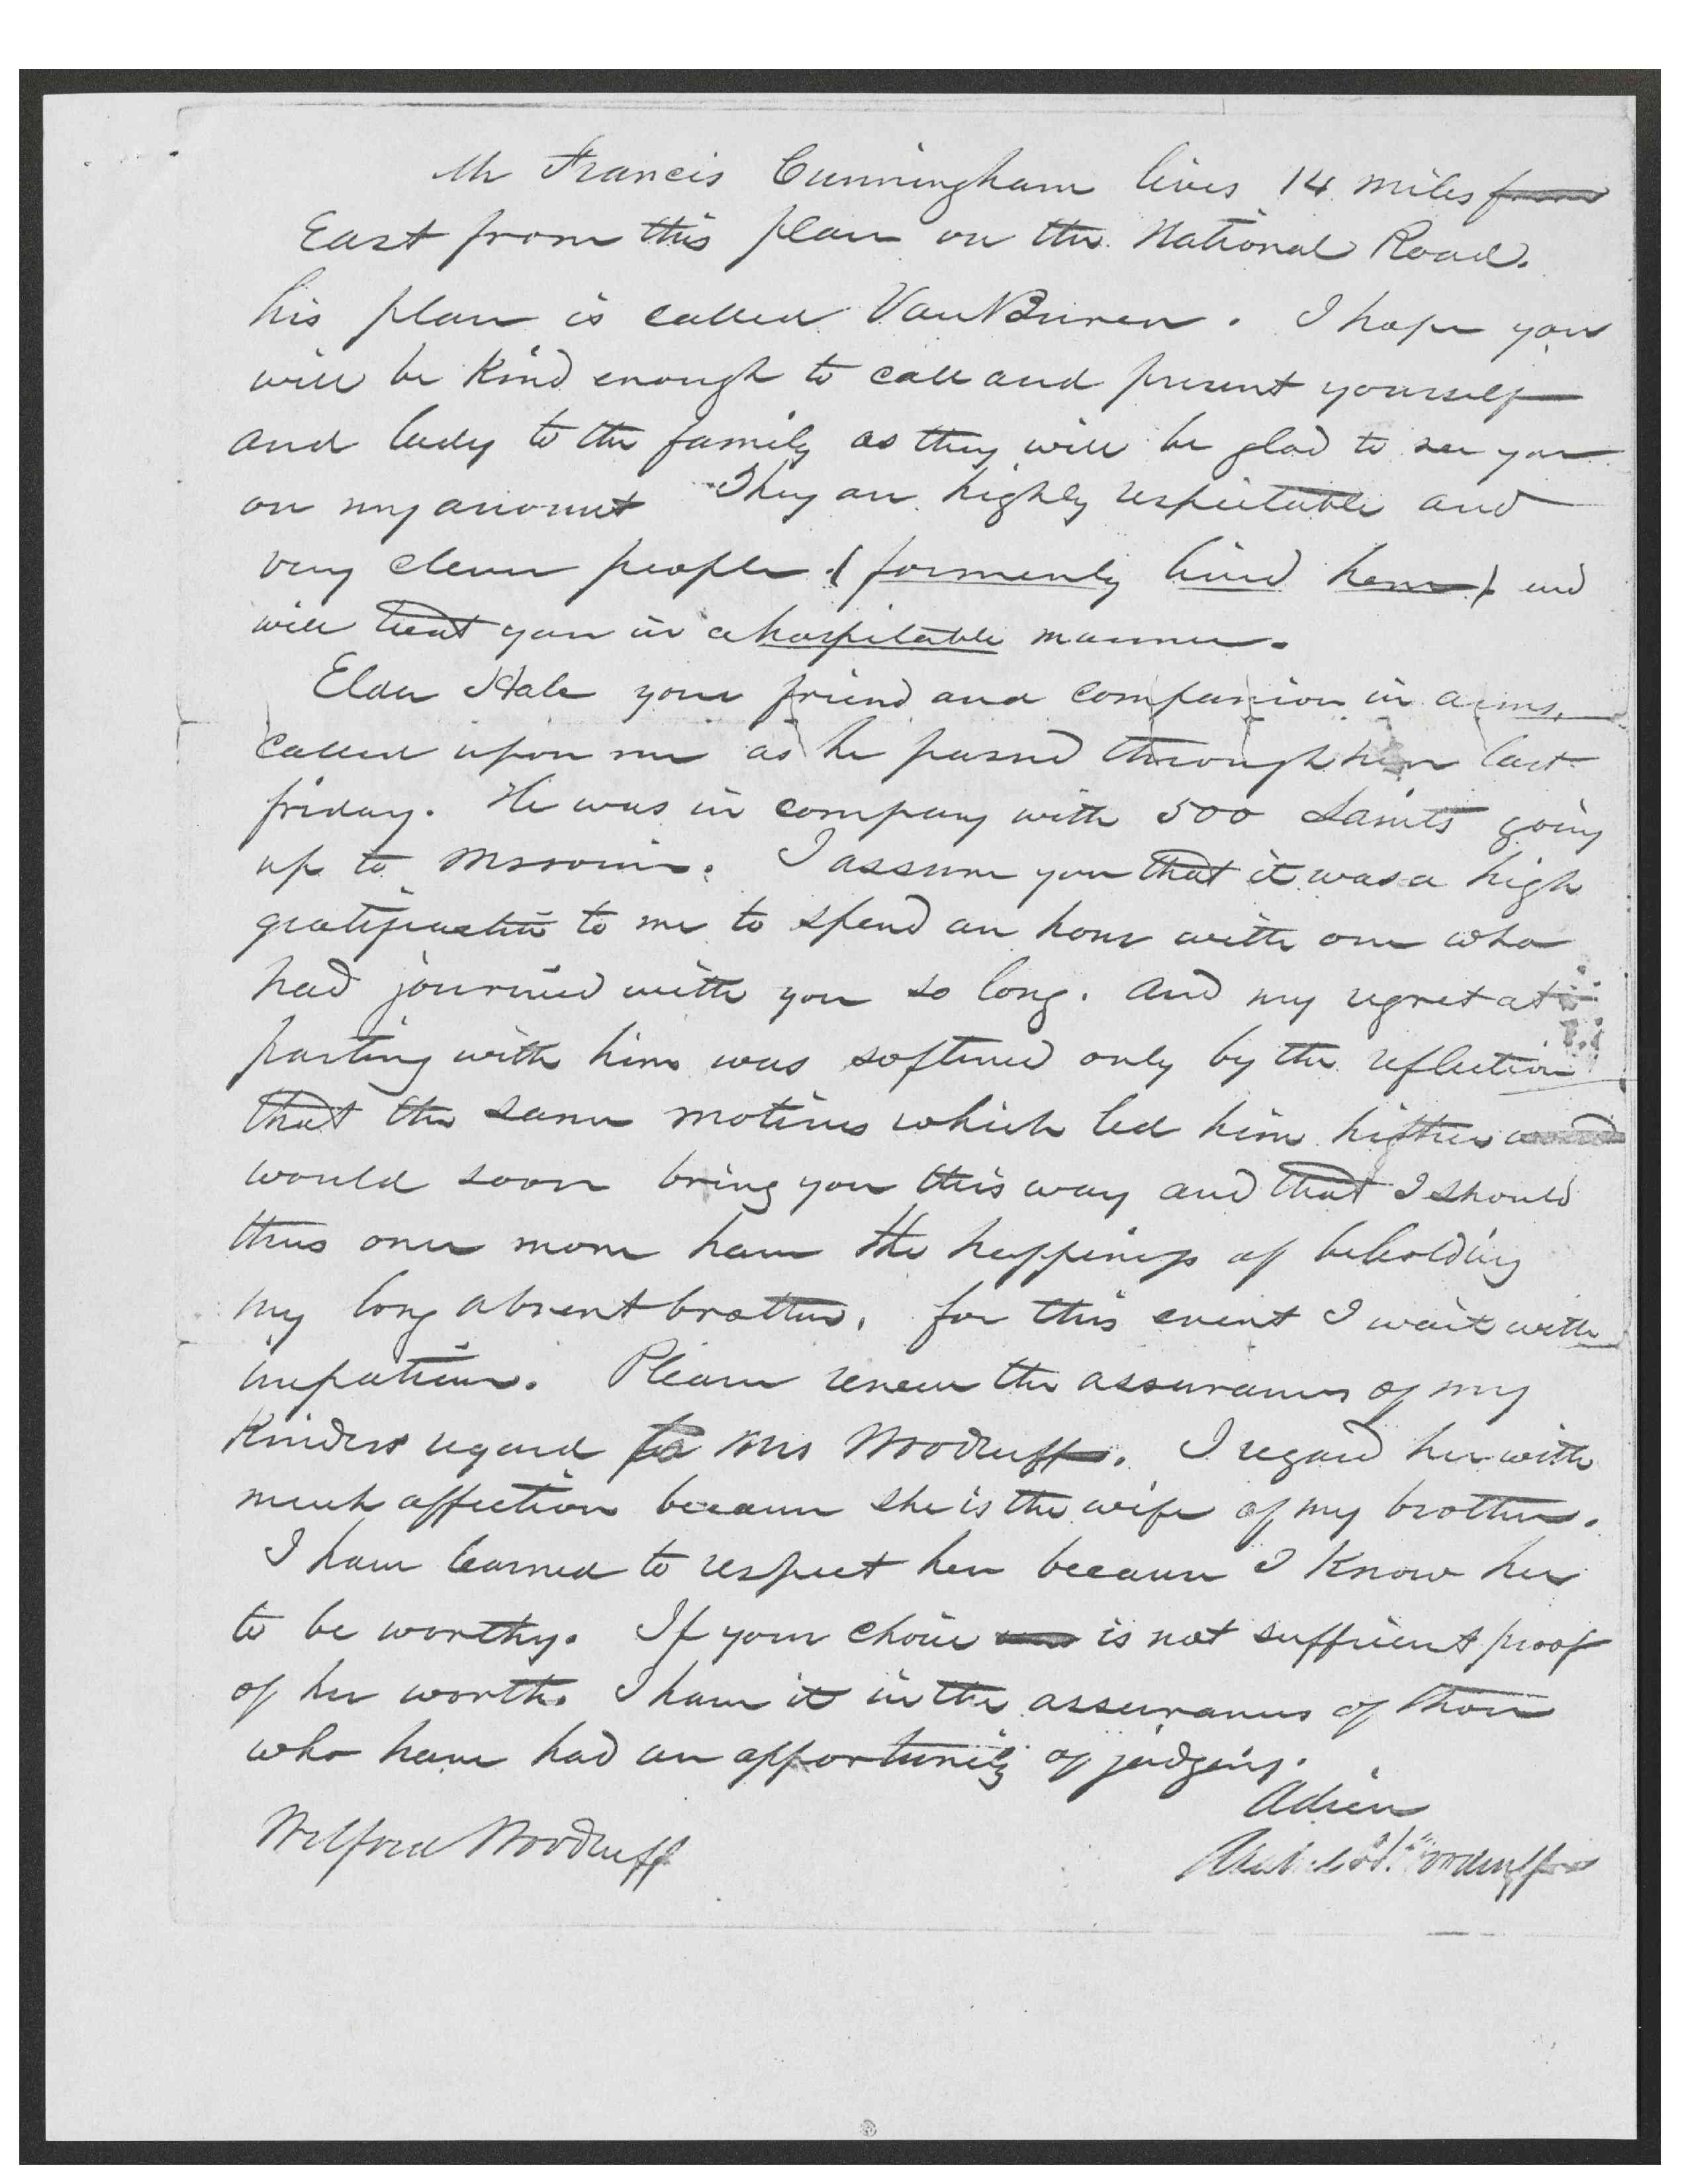 Mr Francis Cunningham lives 14 miles from
East from this place on the National Road.
his place is called Van Buren. I hope you
will be kind enough to call and present yourself
and lady to the family as they will be glad to see you
on my account They are highly respectable and
very clever people. (formerly lived here) and
will treat you in a hospitable manner.
Elder Hale your friend and companion in arms,
called upon me as he passed through here last
friday. He was in company with 500 Saints going
up to Missouri. I assure you that it was a high
gratification to me to spend an hour with one who
had journied with you so long. and my regret at
parting with him was softened only by the reflection
that the same motives which led him hither
would soon bring you this way and that I should
thus once more have the happiness of beholding
my long absent brother. for this event I wait with
impatience. Please renew the assurances of my
kindest regard to Mrs Woodruff. I regard her with
much affection because she is the wife of my brother.
I have learned to respect her because I know her
to be worthy. If your choice is not sufficient proof
of her worth. I have it in the assurances of those
who have had an opportunity of judging.
Adieu
Wilford Woodruff
Woodruff